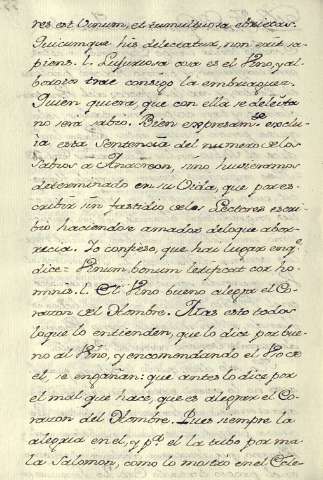 res est Vinum, et tumultuosa ebrietas.
Quicumque his delectatur, non erit sa-
piens. l. Lujuriosa cosa es el Vino, y al-
boroto trae consigo la embriaguez.
Quien quiera, que con ella se deleita
no será sabio. Bien expresamte exclu-
ia esta Sentencia del numero de los
Sabios a Anacreon, sino huvieramos
determinado en su Vida, que por es-
cribir sin fastidio de los Lectores escri-
bio haciendose amador de lo que abor-
recia. Yo confieso, que hai lugar en q.
dice = Vinum bonum letificat cor ho-
minis. l. El Vino bueno alegra el Co-
razon del Hombre. Mas esto todos
lo que lo entienden, que lo dice por bue-
no al Vino, y encomendando el
el, se engañan: que antes lo dice por
el mal que hace, que es alegrar el Co-
razon del Hombre. Pues siempre la
alegria en el, y pr. el la tubo por ma-
la Salomon, como lo mostró en el Ecle-